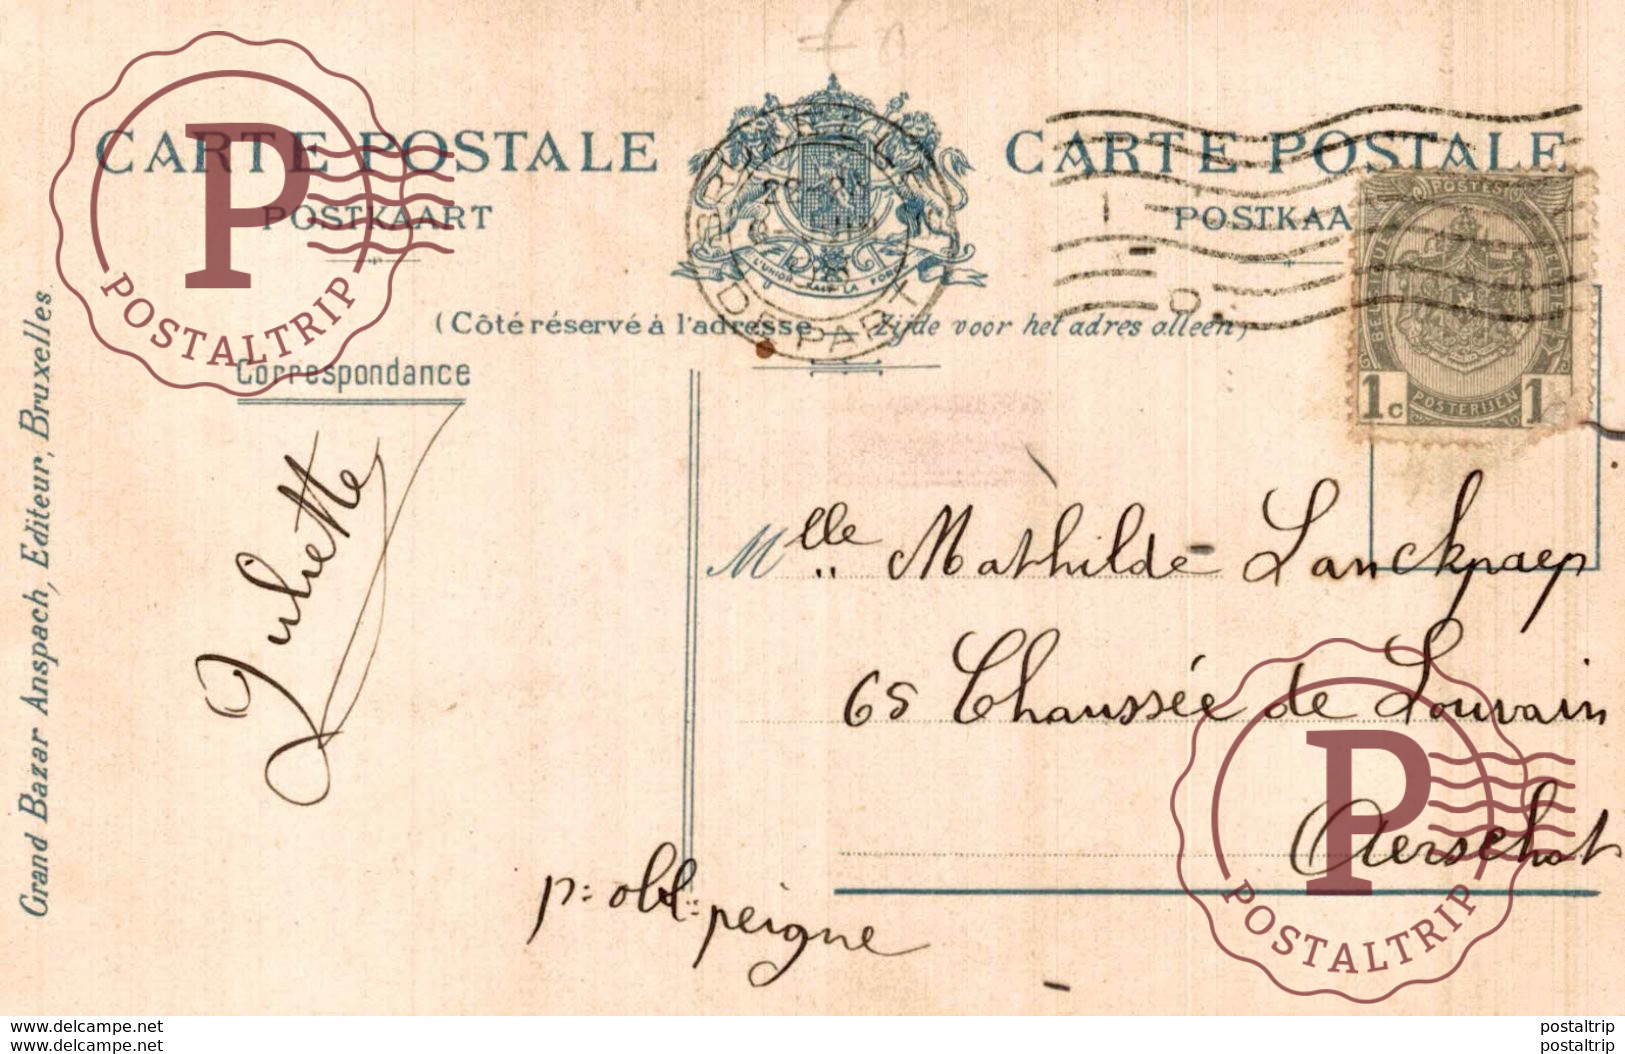 CARTE POSTALE
POSTKAART
CARTE POSTALE
POSTKAA
L'UNION FAIT LA FORCE
DEPART
(Côté réservé à l'adresse Zijde voor het adres alleen)
Correspondance
POSTES
1c 1
POSTERIJEN
Grand Bazar Anspach, Editeur, Bruxelles
Juliette
Mlle Mathilde Lanckpaep
65 Chaussée de Louvain
Aerschot
p: obl: peigne
P
POSTALTRIP
P
POSTALTRIP
www.delcampe.net
postaltrip
www.delcampe.net
postaltrip